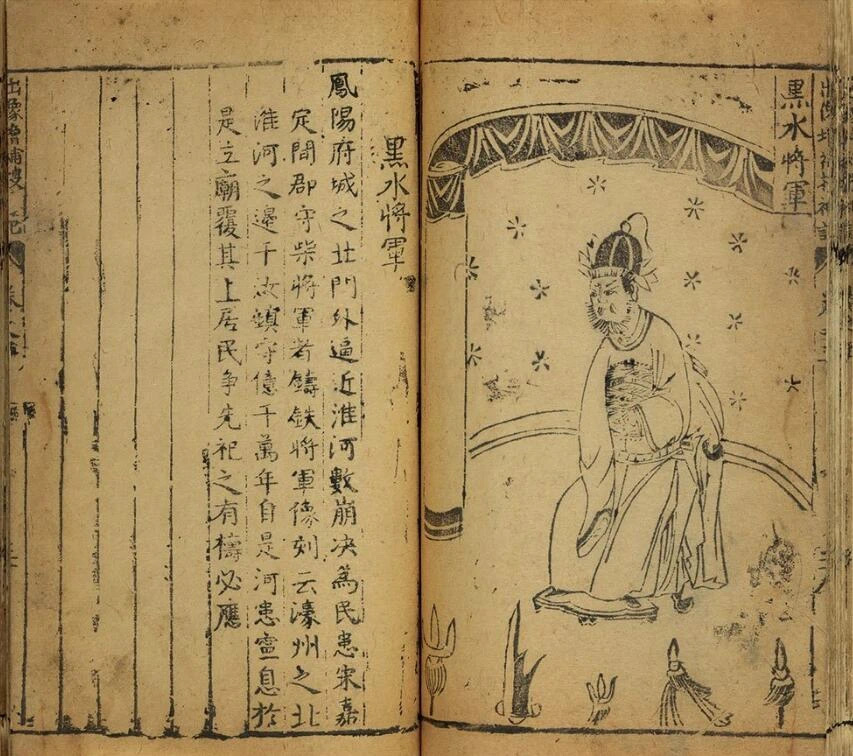 黑水將軍
黑水將軍
鳳陽府城之北門外逼近淮河數崩决為民患宋嘉
定間郡守柴將軍者鑄鉄將軍像刻云濠州之北
淮河之邊千汝鎮守億千萬年自是河患寍息於
是立廟覆其上居民争先祀之有禱必應
出像增補搜